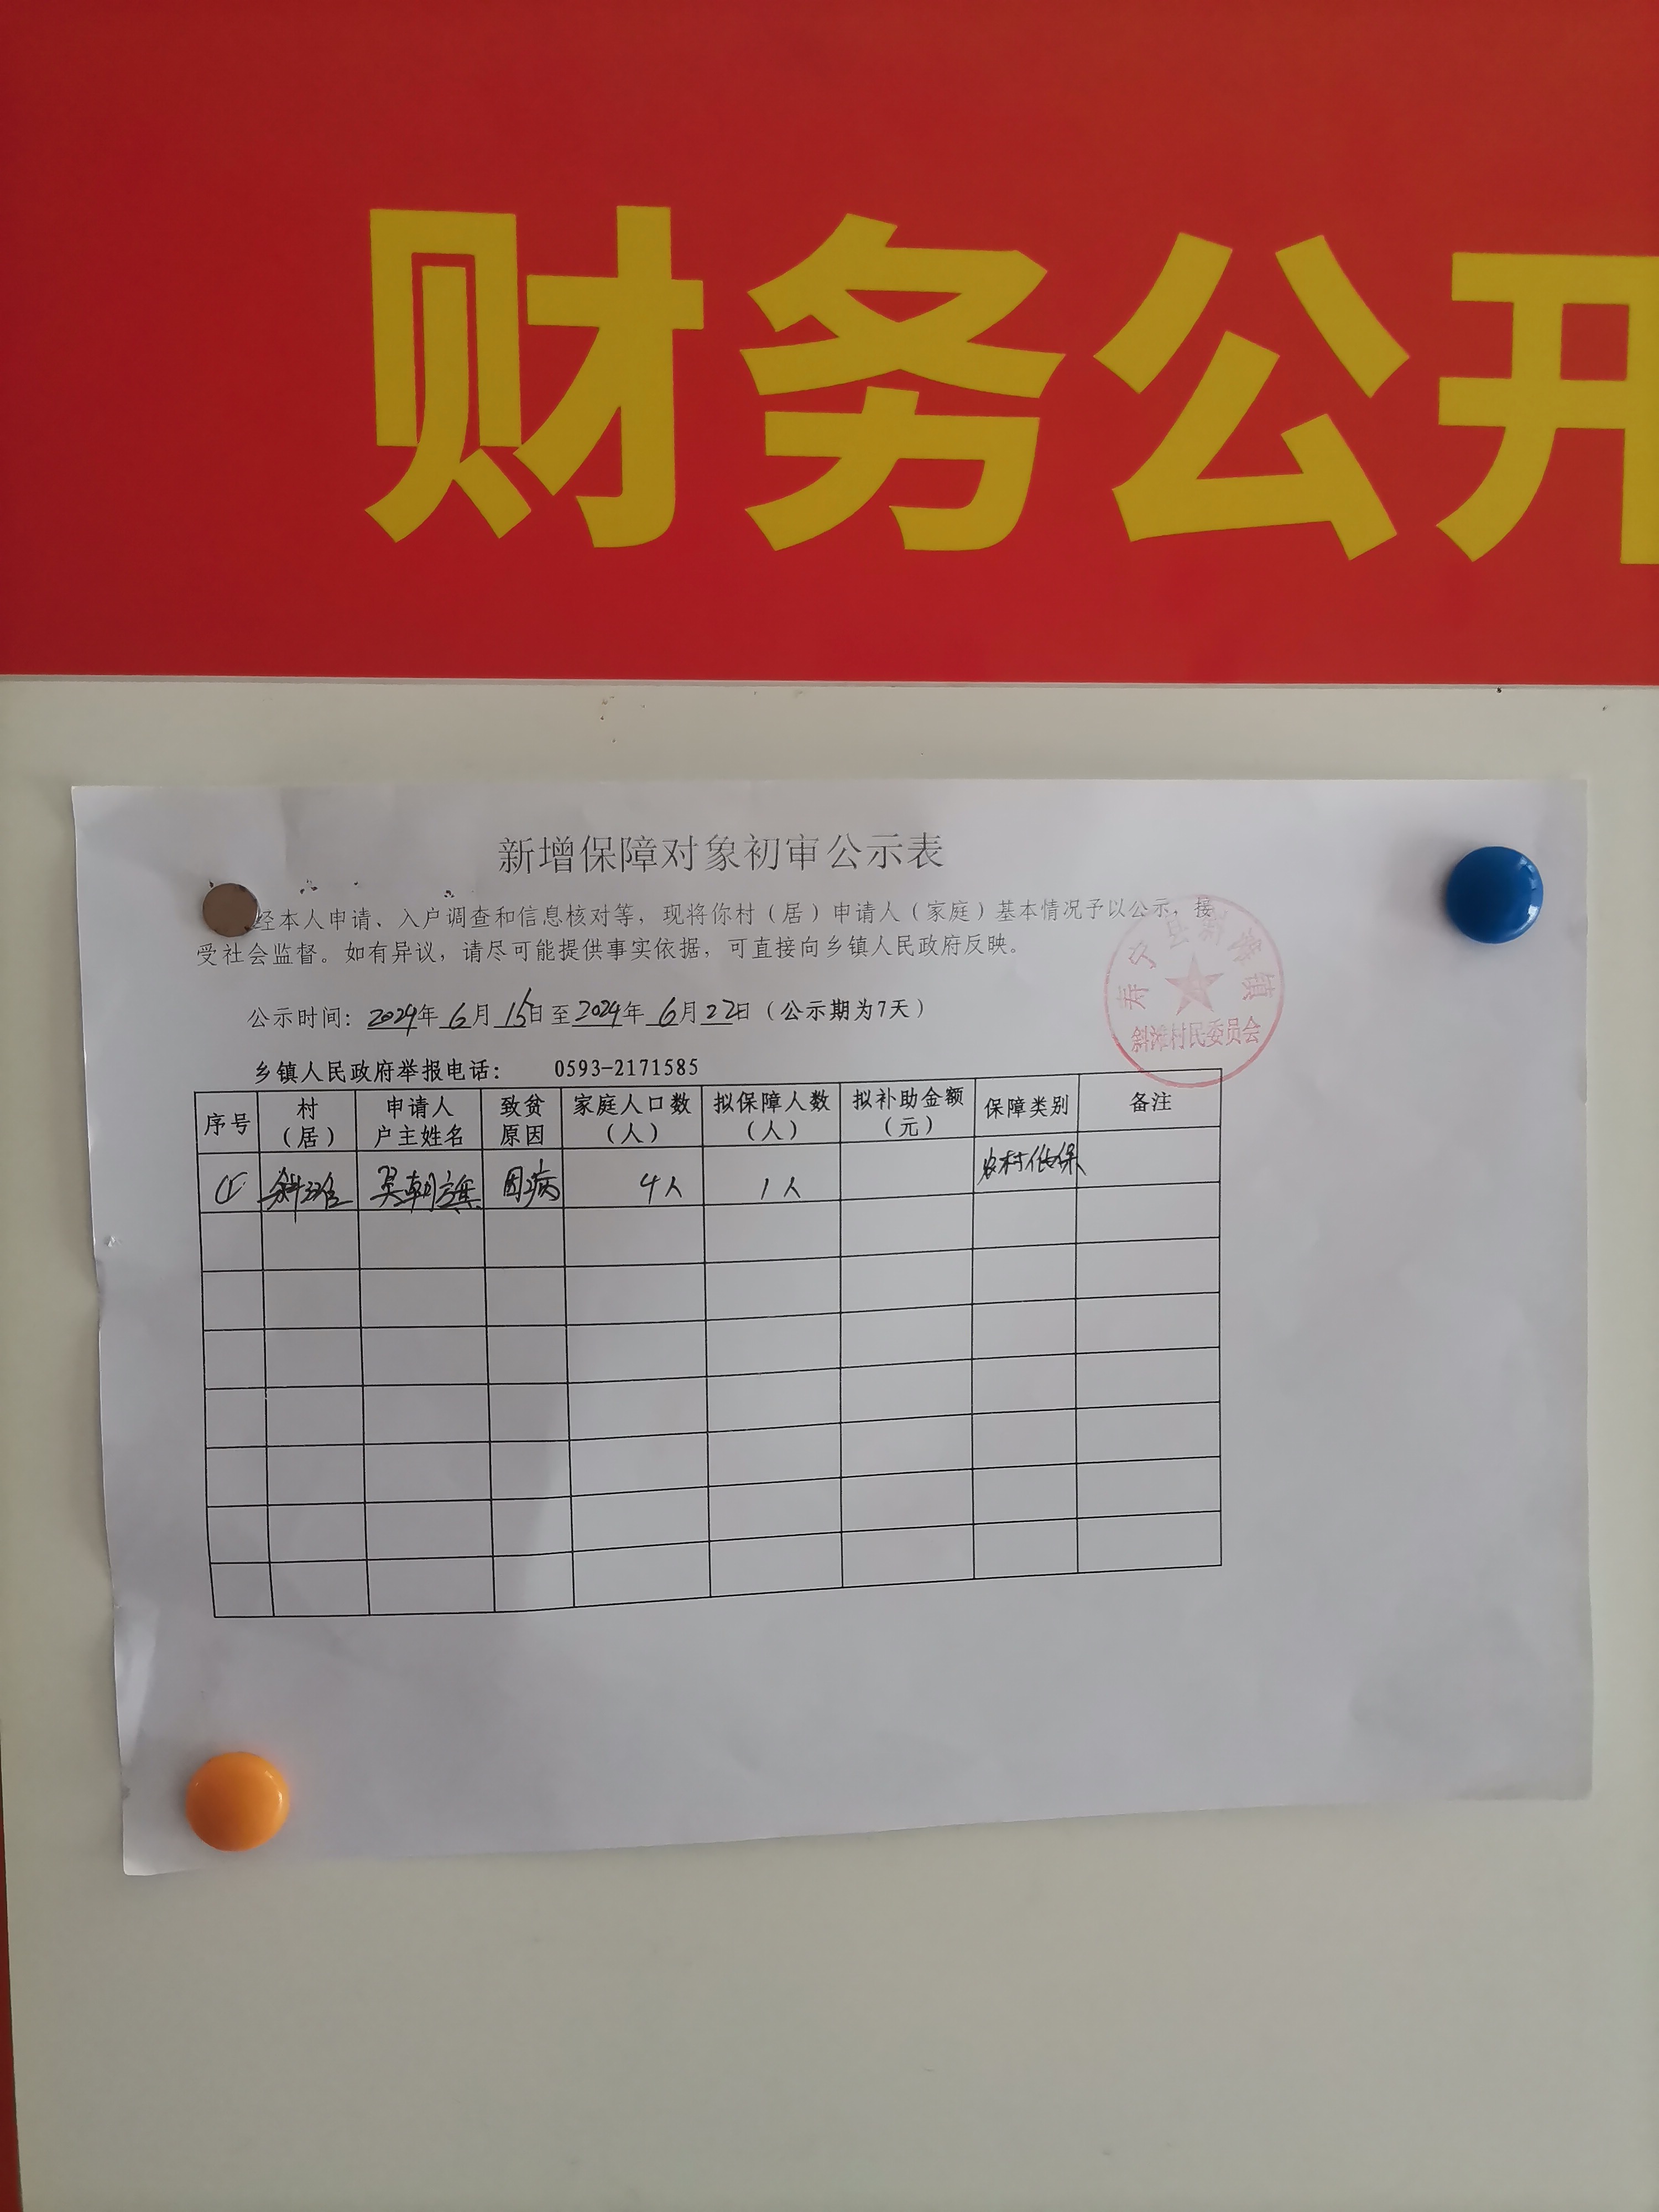 财务公开
新增保障对象初审公示表
经本人申请、入户调查和信息核对等，现将你村（居）申请人（家庭）基本情况予以公示，接
受社会监督。如有异议，请尽可能提供事实依据，可直接向乡镇人民政府反映。
公示时间：2024年 6月 15日至 2024年 6月 22日（公示期为7天）
乡镇人民政府举报电话： 0593-2171585
寿宁县斜滩镇
斜滩村民委员会
序号 村（居） 申请人户主姓名 致贫原因 家庭人口数（人） 拟保障人数（人） 拟补助金额（元） 保障类别 备注
① 斜滩 吴朝旗 因病 4人 1人 农村低保